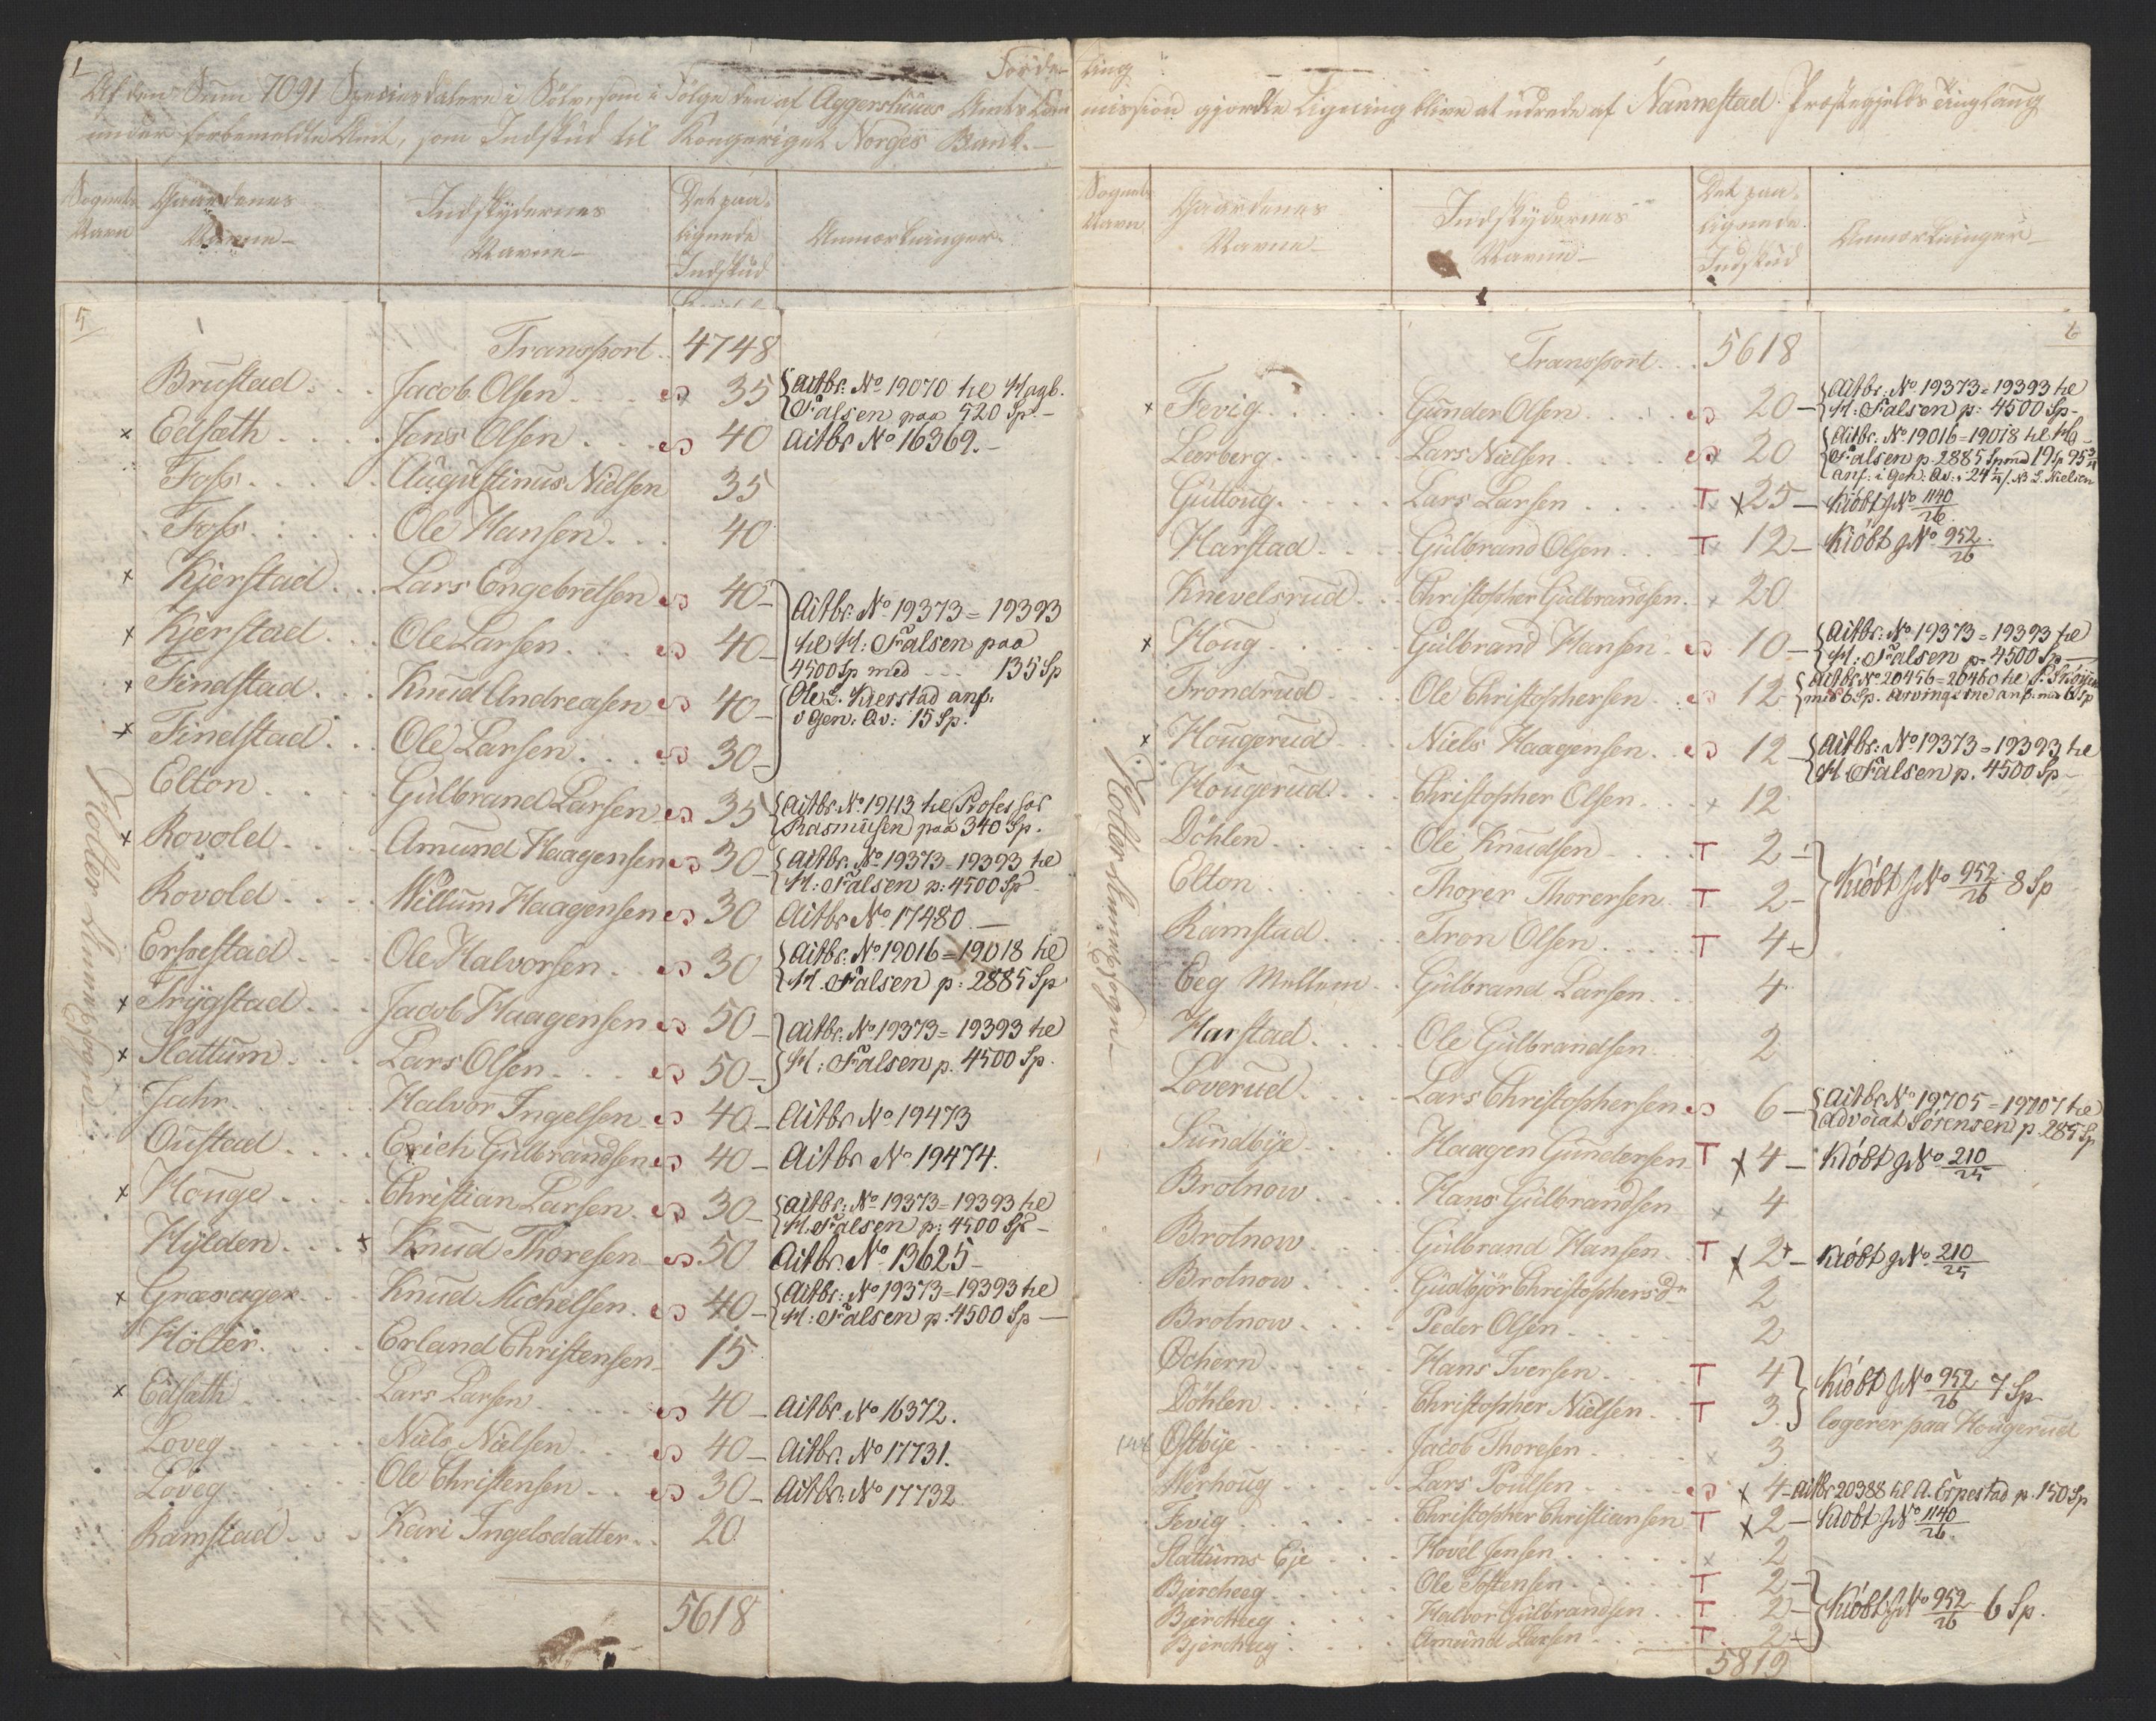 1
Fördeling
Af den Sum 7091 Speciesdalere i Sölv, som i Fölge den af Aggershuus Amts Commission gjordte Ligning blive at udrede af Nannestad Præstegjelds Tinglaug
under forbemeldte Amt, som Indskud til Kongeriget Norges Bank.
Sognets Navn
Gaardenes Navne
Indskydernes Navne
Det paalignede Indskud
Anmærkninger
5
Holter Annex Sogn
Transport 4748
Brustad Jacob Olsen 35 Actbr. No 19070 til Hagb. Falsen paa 520 Sp.
x Eelsæth Jens Olsen 40 Actbr No 16369.
Foss Augustinus Nielsen 35
Foss Ole Hansen 40
x Kjerstad Lars Engebretsen 40
x Kjerstad Ole Larsen 40
x Findstad Knud Andreasen 40
x Finelstad Ole Larsen 30
Actbr. No 19373 = 19393
til H: Falsen paa
4500 Sp med 135 Sp
Ole L. Kierstad anf.
i Gen: Qv: 15 Sp.
Elton Gulbrand Larsen 35 Actbr. No 19113 til Professor Rasmusen paa 340 Sp.
x Rovold Amund Haagensen 30 Actbr. No 19373 = 19393 til H: Falsen p: 4500 Sp
Rovold Willum Haagensen 30 Actbr No 17480.
Erpestad Ole Halvorsen 30 Actbr. No 19016 = 19018 til H. Falsen p: 2885 Sp
x Trygstad Jacob Haagensen 50
x Slattum Lars Olsen 50
Actbr. No 19373 = 19393 til
H: Falsen p. 4500 Sp.
Jahr Halvor Ingelsen 40 Actbr No 19473
Oustad Erich Gulbrandsen 40 Actbr No 19474.
x Houge Christian Larsen 30 Actbr: No 19373 = 19393 til H. Falsen p: 4500 Sp
Hylden x Knud Thoresen 50 Actbr No 13625
x Græsager Knud Michelsen 40 Actbr: No 19373 = 19393 til H: Falsen p: 4500 Sp
Holter Erland Christensen 15
x Edsæth Lars Larsen 40 Actbr. No 16372.
Loveg Niels Nielsen 40 Actbr. No 17731.
Loveg Ole Christensen 30 Actbr: No 17732
Ramstad Kari Ingelsdatter 20
5618
Sognets Navn
Gaardenes Navne
Indskydernes Navne
Det paalignede Indskud
Anmærkninger
6
Holter Annex Sogn
Transport 5618
x Fevig Gunder Olsen 20 Actbr: No 19373 = 19393 til H: Falsen p: 4500 Sp
Leerberg Lars Nielsen 20 Actbr. No 19016 = 19018 til Hg Falsen p. 2885 Sp med 19 Sp 95 3/4
anf: i Gen: Qv: 24 1/4 s. NB L. Nielsen
Gulloug Lars Larsen T x 25 Kiöbt No 1140/26
Harstad Gulbrand Olsen T 12 Kiöbt No 952/26
Knevelsrud Christopher Gulbrandsen x 20
x Houg Gulbrand Hansen 10 Actbr: No 19373 = 19393 til H: Falsen p. 4500 Sp
Trondrud Ole Christophersen 12 Actbr No 20456 = 20460 til
med 6 Sp. Arvingerne anf. med 6 Sp
x Hougerud Niels Haagensen 12 Actbr: No 19373 = 19393 til H Falsen p. 4500 Sp
Hougerud Christopher Olsen x 12
Döhlen Ole Knudsen T 2
Elton Thorer Thorersen T 2
Ramstad Tron Olsen T 4
Kiöbt No 952/26 8 Sp
Eeg Mellem Gulbrand Larsen 4
Harstad Ole Gulbrandsen 2
Loverud Lars Christophersen 6 Actbr No 19705 = 19707 til Advocat Sörensen p. 285 Sp
Sundbye Haagen Gundersen T x 4 Kiöbt No 210/25
Brotnow Hans Gulbrandsen x 4
Brotnow Gulbrand Hansen T x 2 Kiöbt No 210/25
Brotnow Gudbjör Christophersdr 2
Brotnow Peder Olsen 2
Ochern Hans Iversen T 4
Döhlen Christopher Nielsen T 3
Kiöbt No 952/26 7 Sp
logerer paa Hougerud
Ostbye Jacob Thoresen x 3
Merhoug Lars Poulsen x 4 Actbr 20388 til A. Erpestad p. 150 Sp
Fevig Christopher Christiansen T x 2 Kiöbt No 1140/26
Slattums Eje Hovel Jensen x 2
Bjercheeg Ole Tostensen T 2
Bjercheeg Halvor Gulbrandsen T 2
Bjercheeg Amund Larsen T 2
Kiöbt No 952/26 6 Sp.
5819